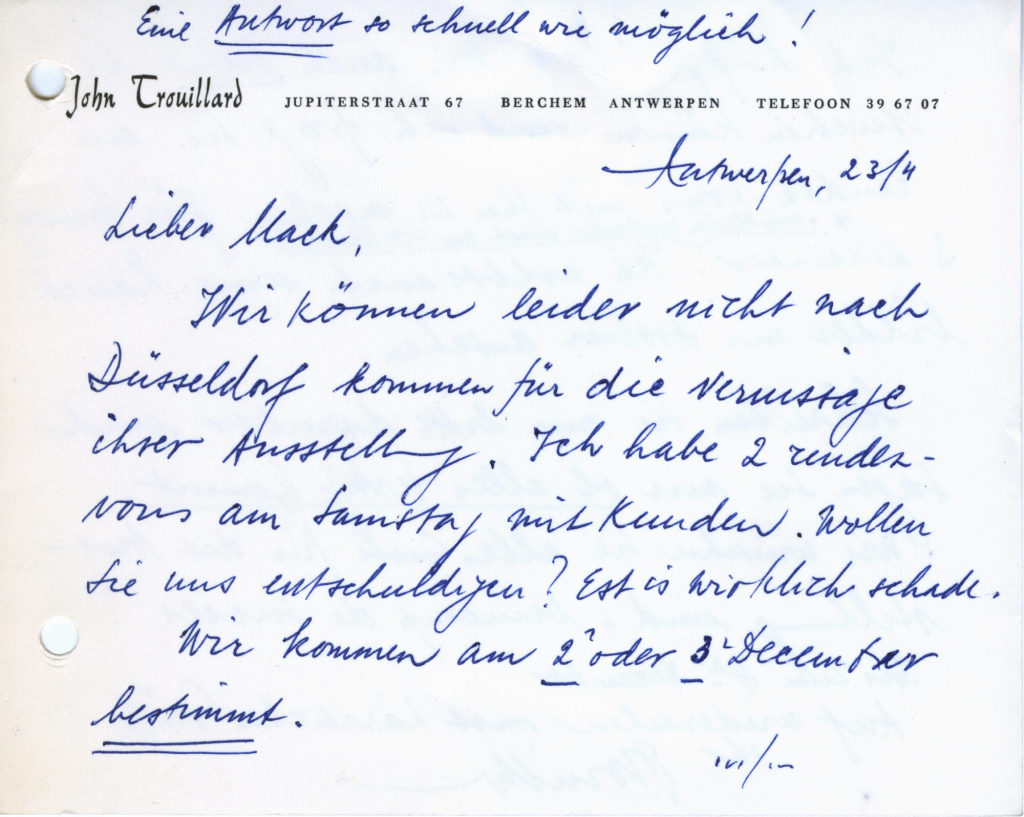 Eine Antwort so schnell wie möglich !
John Trouillard JUPITERSTRAAT 67 BERCHEM ANTWERPEN TELEFOON 39 67 07
Antwerpen, 23/4
Lieber Mack,
Wir können leider nicht nach
Düsseldorf kommen für die Vernissage
ihrer Ausstellung. Ich habe 2 rendez-
vous am Samstag mit Kunden. Wollen
Sie uns entschuldigen? Est is wirklich schade.
Wir kommen am 2 oder 3 December
bestimmt.